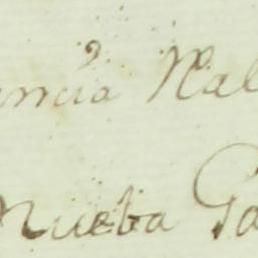 encia Nal
Nueba Ga